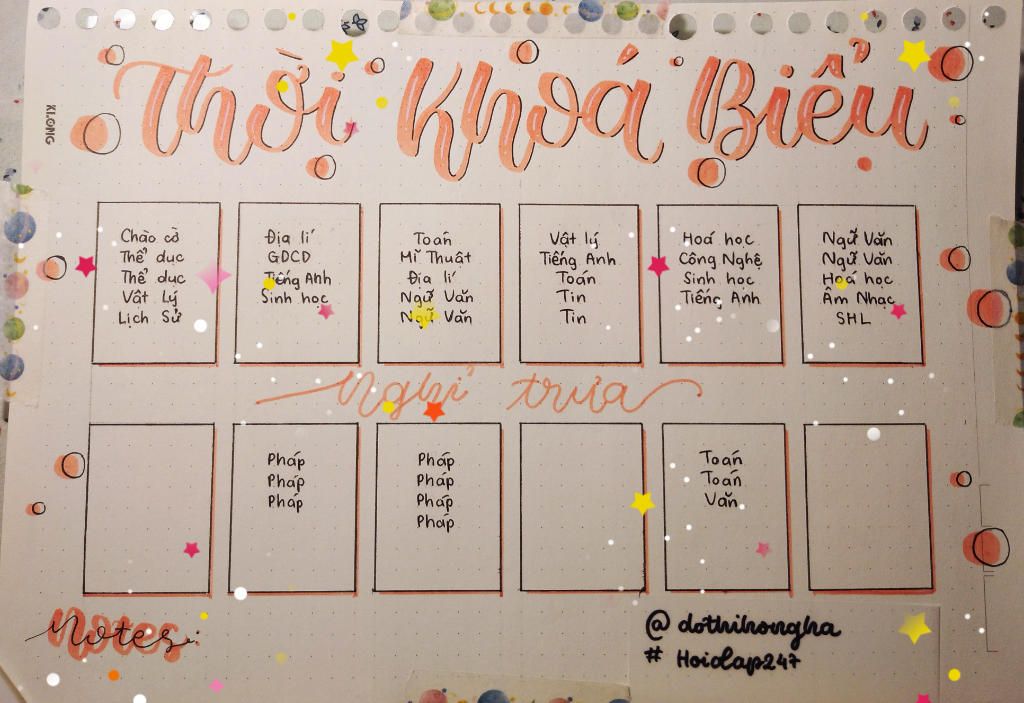 XLONG
Thời Khoá Biểu
Chào cờ
Thể dục
Thể dục
Vật Lý
Lịch Sử
Địa lí
GDCD
Tiếng Anh
Sinh học
Toán
Mĩ Thuật
Địa lí
Ngữ Văn
Ngữ Văn
Vật lý
Tiếng Anh
Toán
Tin
Tin
Hoá học
Công Nghệ
Sinh học
Tiếng Anh
Ngữ Văn
Ngữ Văn
Hoá học
Âm Nhạc
SHL
Nghỉ trưa
Pháp
Pháp
Pháp
Pháp
Pháp
Pháp
Pháp
Toán
Toán
Văn
Notes:
@ dothihongha
# Hoidap247